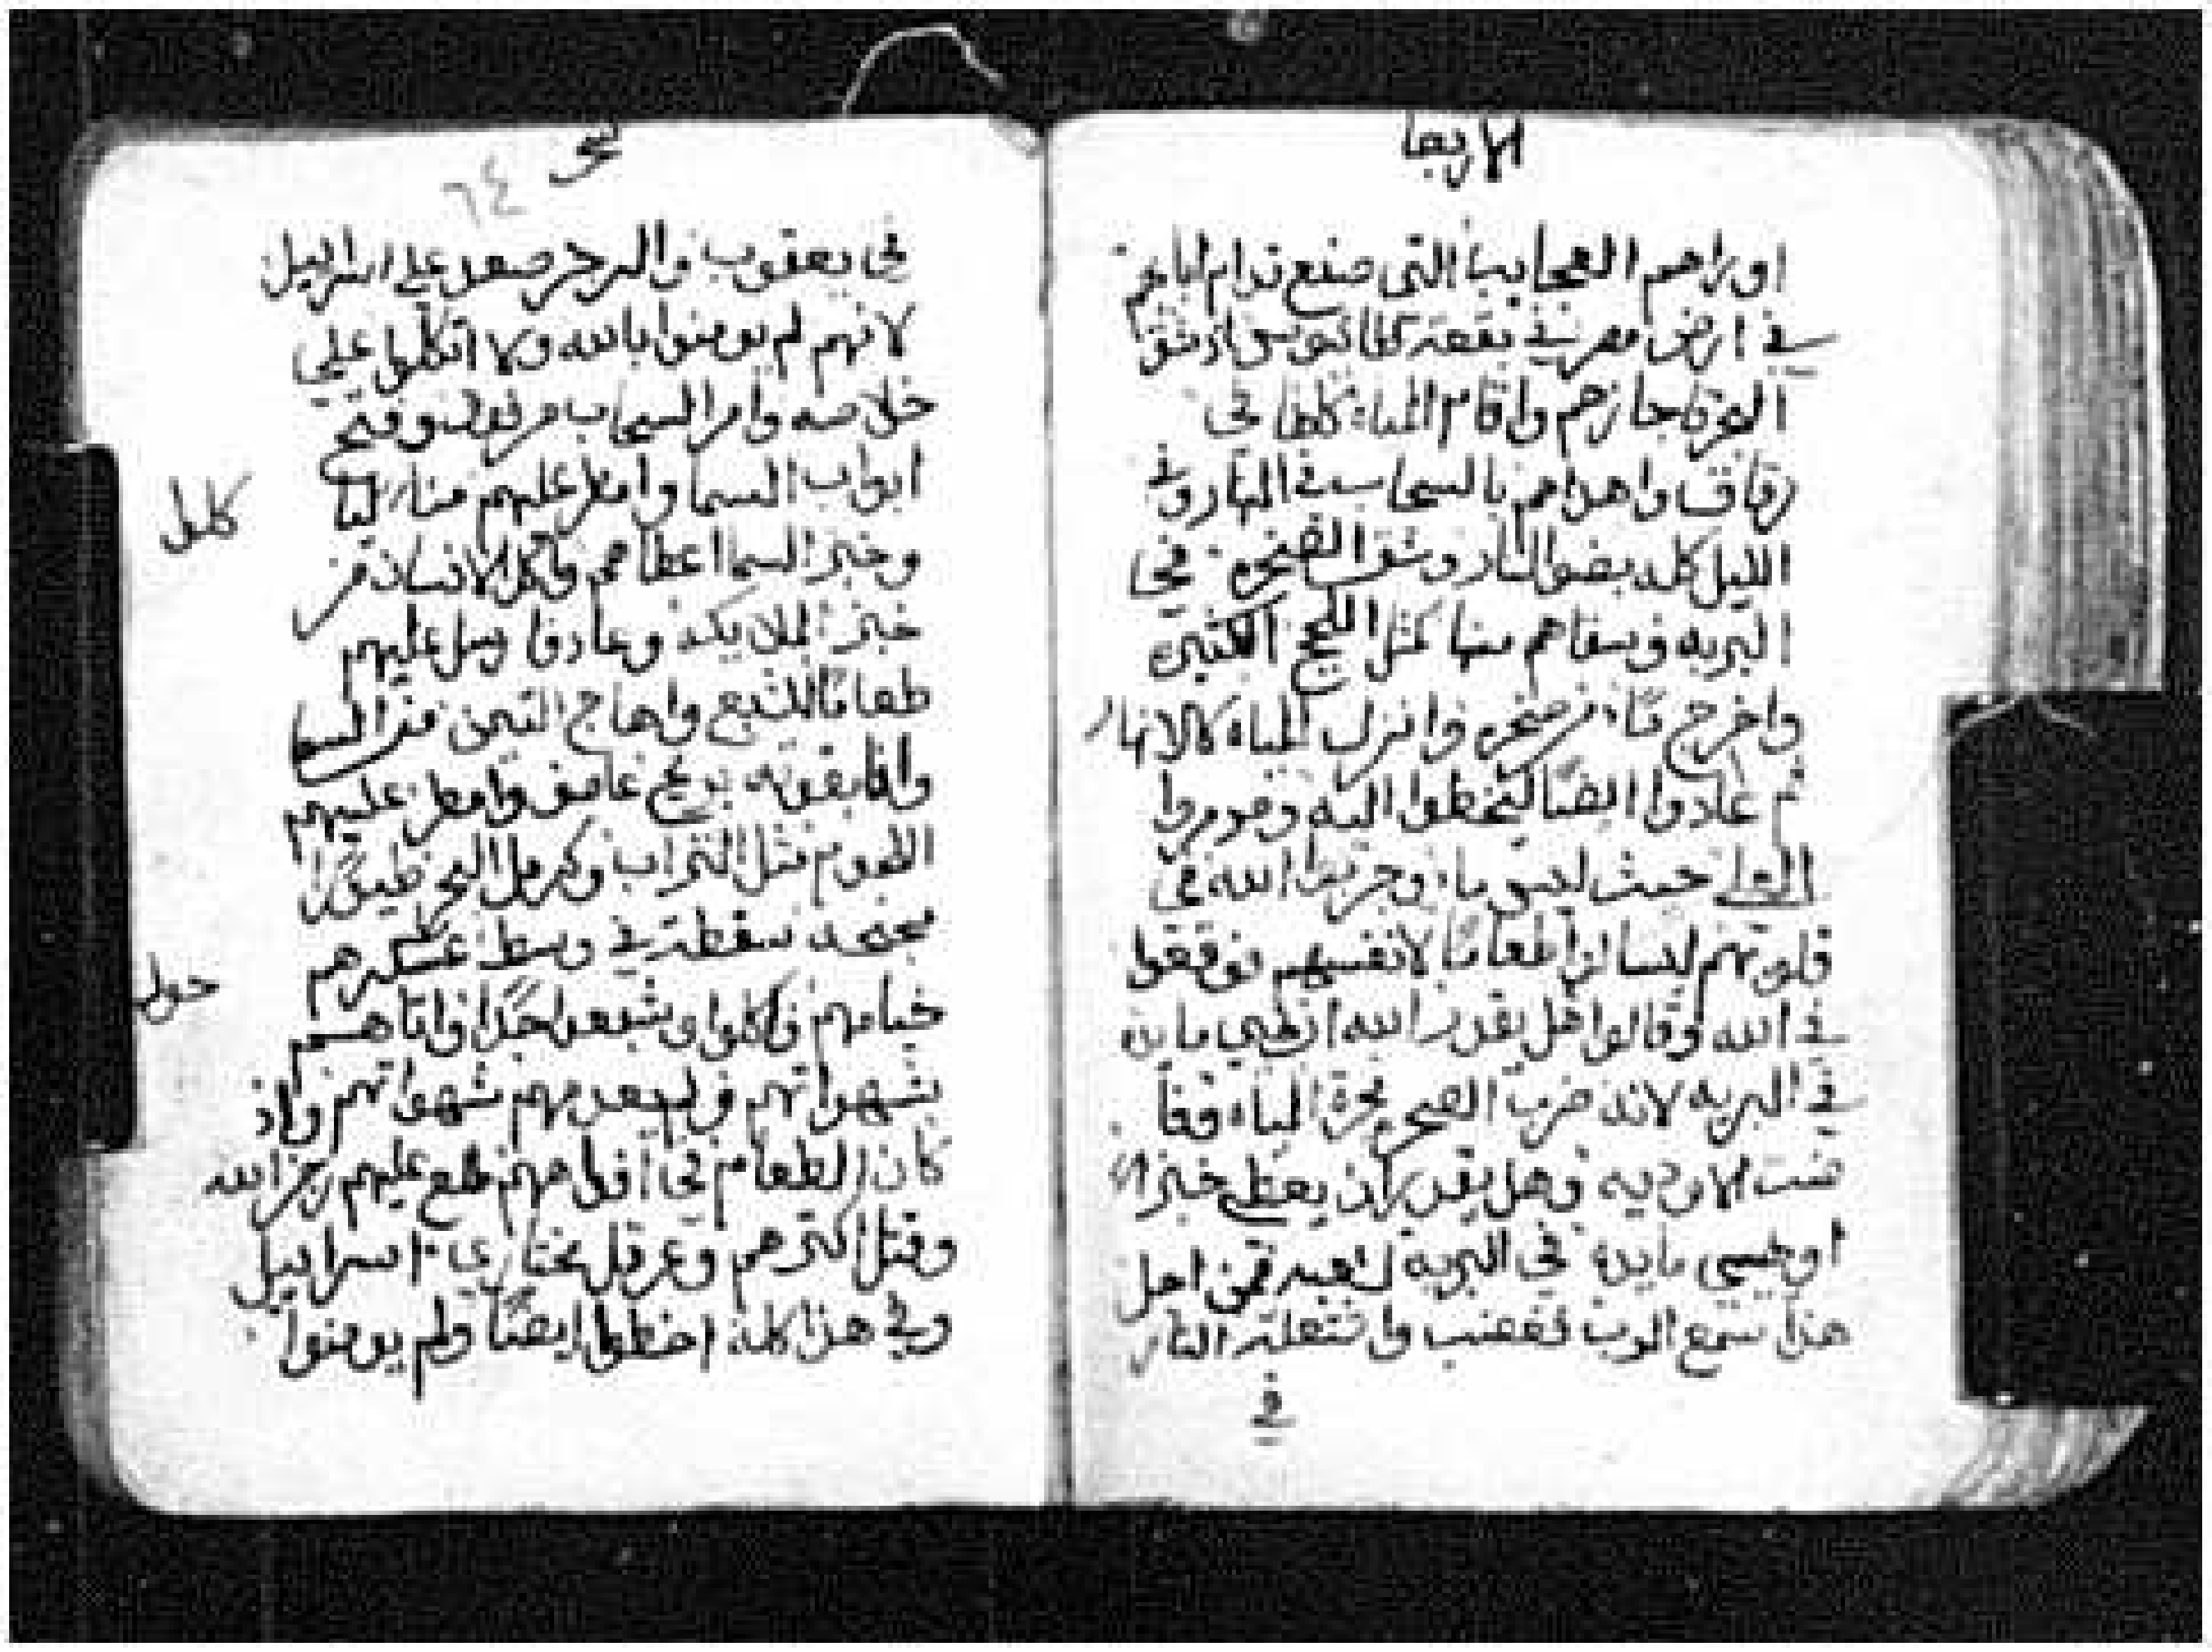 الاربعا
اوراهم العجايب التي صنع قدام اباهم
في ارض مصر في بقعة اذ شق
البحر فاجازهم واقام المياه كلها في
زقاق واهداهم بالسحاب في النهار وفي
الليل كله بضو النار وشق الصخره في
البريه وسقاهم منها كمثل اللجج الكثيره
واخرج ماء من صخره وانزل المياه كالانهار
ثم عادوا ايضًا ليخطوا اليه ومرمروا
العلي حيث ليس ماء وجربوا الله في
قلوبهم ليسالوا طعامًا لانفسهم فوقعوا
في الله وقالوا هل يقدر الله ان يهيي مايده
في البريه لانه ضرب الصخره فجرة المياه وفا
ضت الاوديه وهل يقدر ان يعطي خبزًا
او يهيي مايده في البريه لشعبه فمن اجل
هذا سمع الرب فغضب واشتعلة النار
في
٦٤
في يعقوب والرجز صعد علي اسراييل
لانهم لم يومنوا بالله ولا اتكلوا علي
خلاصه وامر السحاب من فوق وفتح
ابواب السما وامطر عليهم منا لياكلوا
وخبز السما اعطاهم واكل الانسان من
خبز الملايكه وعادفا رسل عليهم
طعامًا للشبع واهاج التيمن من السما
واتا بقوته بريح عاصف وامطر عليهم
اللحوم مثل التراب وكرمل البحر طيورًا
مجنحه سقطة في وسط عسكرهم حول
خيامهم فاكلوا وشبعوا جدًا واتاهم
بشهواتهم ولم يعدمهم شهواتهم واذ
كان الطعام في افواههم طلع عليهم رجز الله
وقتل اكثرهم وعرقل مختاري اسراييل
وفي هذا كله اخطوا ايضًا ولم يومنوا